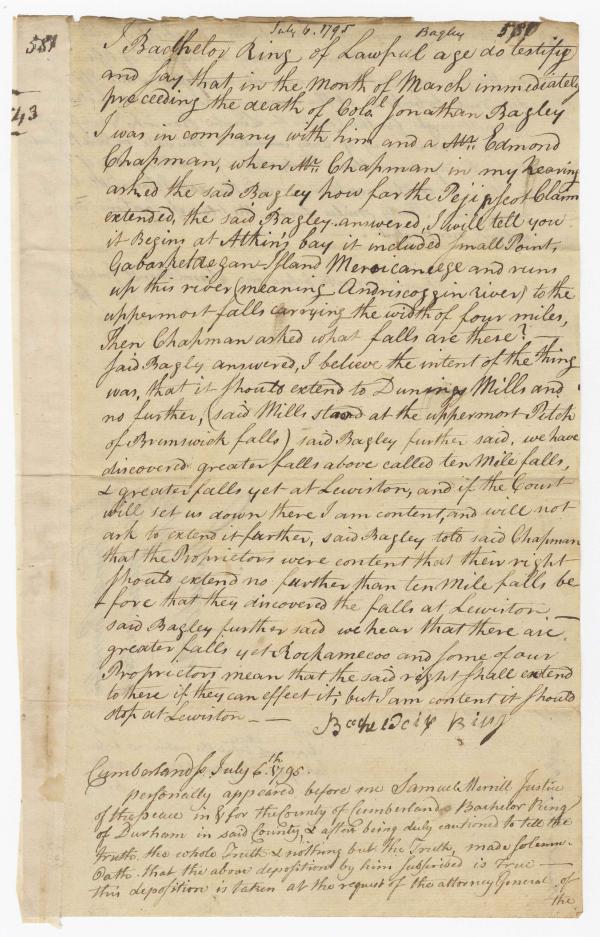 July 6. 1795 Bagley 581
581
I Bachelor Ring of Lawful age do testify
and say that in the month of March immediately
preceeding the death of Colo. Jonathan Bagley
43
I was in company with him and a Mr. Edmond
Chapman, when Mr. Chapman in my hearing
asked the said Bagley how far the Pejipscot Claim
extended, the said Bagley answered, I will tell you
it Begins at Atkins bay it included small Point,
Island Mericaneege and runs
up this river (meaning Andriscoggin River) to the
uppermost falls carrying the width of four miles,
Then Chapman asked what falls are these? —
said Bagley answered, I believe the intent of the thing
was, that it should extend to Dunings Mills and
no further, (said Mills stood at the uppermost Pitch
of Brunswick falls) said Bagley further said, we have
discovered greater falls above called ten Mile falls,
& greater falls yet at Lewiston, and if the Court
will set us down there I am content, and will not
ask to extend it further, said Bagley told said Chapman
that the Proprietors were content that their right
should extend no further than ten Mile falls be
fore that they discovered the falls at Lewiston
said Bagley further said we hear that there are
greater falls yet Rockamecoo and some of our
Proprietors mean that the said right shall extend
to these if they can effect it; but I am content it should
stop at Lewiston — —
Cumberland ss July 6th. 1795.
personally appeared before me Samuel Merrill Justice
of the peace in & for the County of Cumberland Bachelor Ring
of Durham in said County & after being duly cautioned to tell the
truth, the whole Truth & nothing but the Truth, made solemn
Oath that the above deposition by him subscribed is True —
this deposition is taken at the request of the attorney General of
the